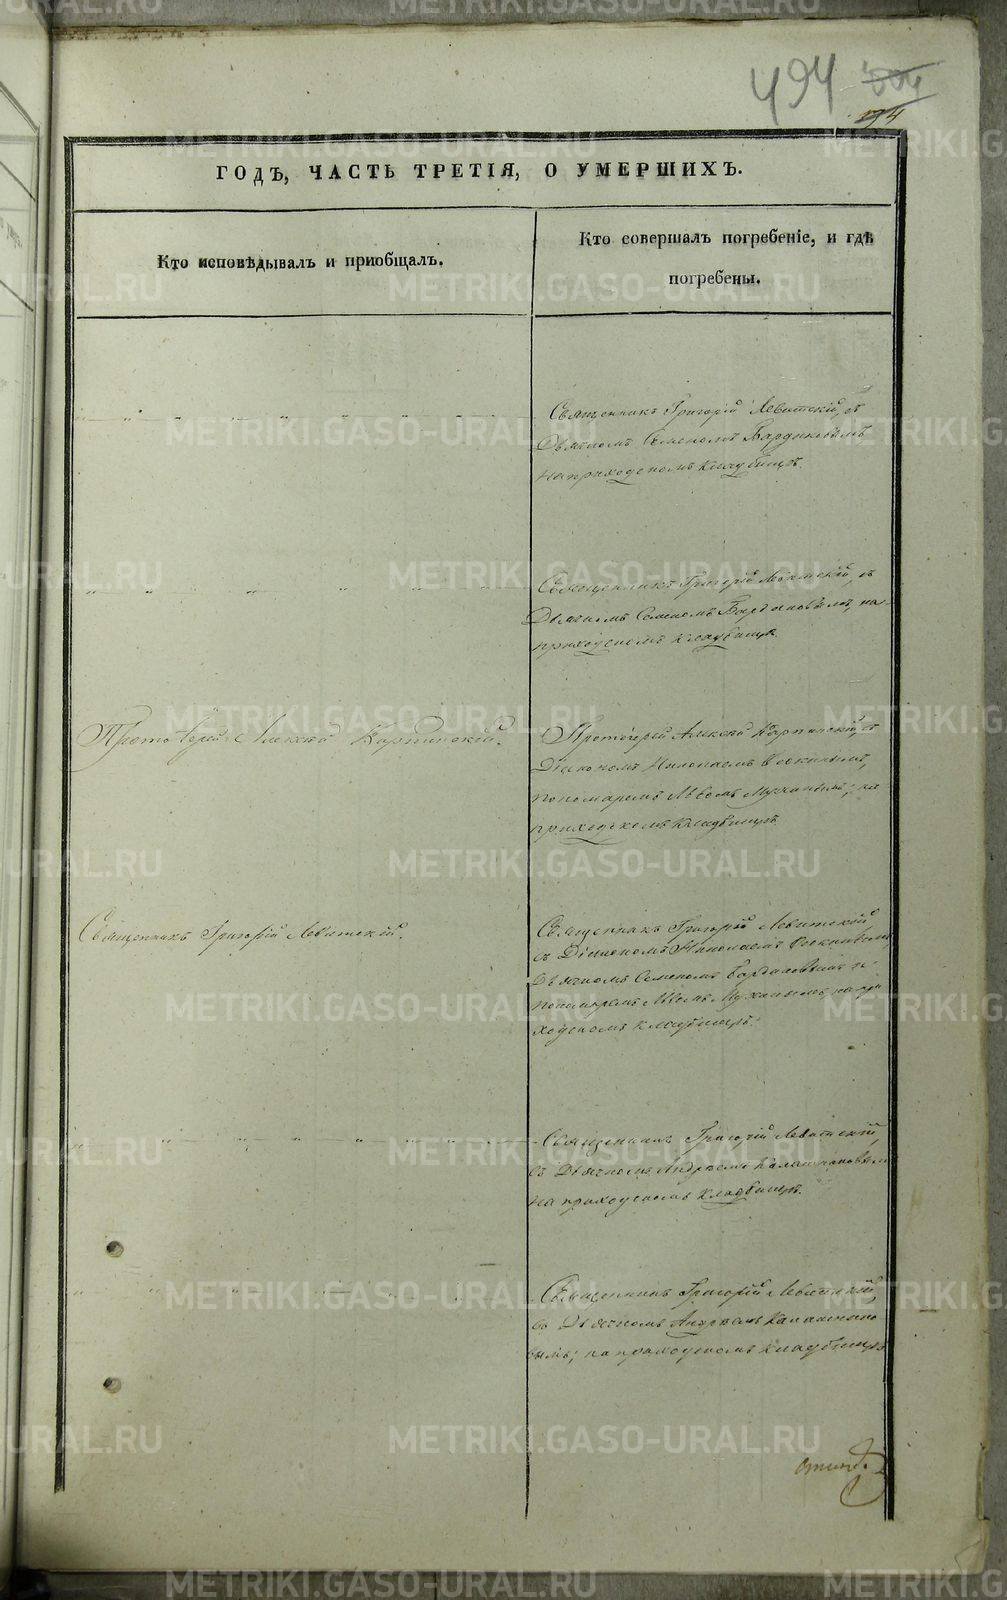 494
ГОДЪ, ЧАСТЬ ТРЕТІЯ, О УМЕРШИХЪ.
Кто исповѣдывалъ и приобщалъ.
Кто совершалъ погребеніе, и гдѣ
погребены.
Священникъ Григорій Левитскій, съ
Дьячкомъ Семеномъ
на приходскомъ кладбищѣ.
Священникъ Григорій Левитскій, съ
Дьячкомъ Семеномъ на
приходскомъ кладбищѣ.
Протоіерей Алексѣй Карпинскій.
Протоіерей Алексѣй Карпинскій съ
Діакономъ Николаемъ
пономаремъ Львомъ на
приходскомъ кладбищѣ.
Священникъ Григорій Левитскій.
Священникъ Григорій Левитскій
съ Діакономъ Николаемъ
Дьячкомъ Семеномъ и
пономаремъ Львомъ на при
ходскомъ кладбищѣ.
Священникъ Григорій Левитскій,
съ Дьячкомъ Андреемъ
на приходскомъ кладбищѣ.
Священникъ Григорій Левитскій,
съ Дьячкомъ Андреемъ
вымъ; на приходскомъ кладбищѣ
METRIKI.GASO-URAL.RU